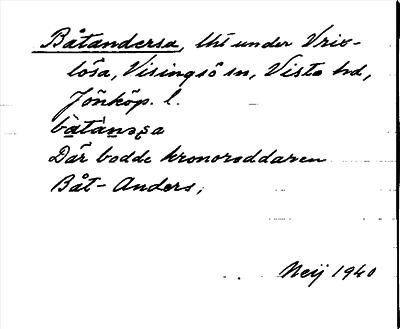 Båtandersa, lht under Vrix-
lösa, Visingsö sn, Vista hd,
Jönköp. l.
bàtànəsa
Där bodde kronoroddaren
Båt-Anders;
Neij 1940